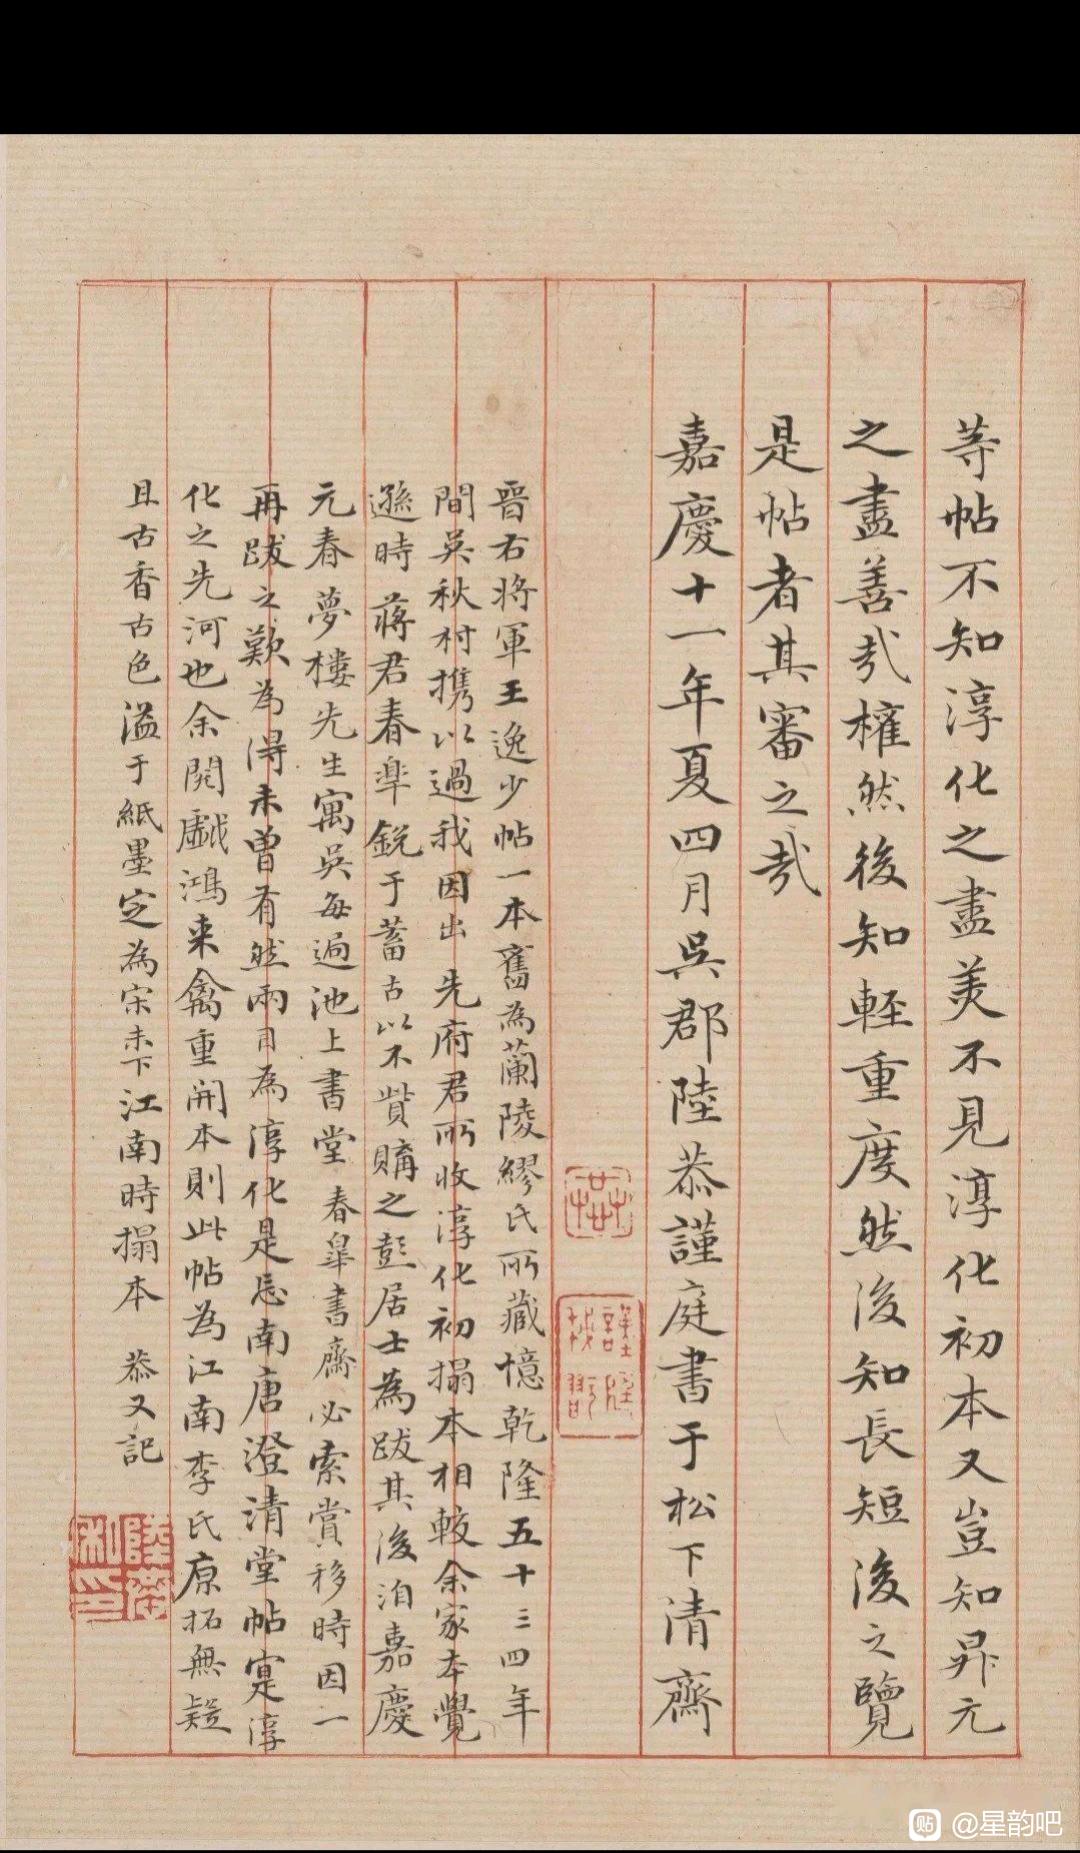 等帖不知淳化之盡美不見淳化初本又豈知昇元
之盡善哉權然後知輕重度然後知長短後之覽
是帖者其審之哉
嘉慶十一年夏四月吳郡陸恭謹庭書于松下清齋
晉右將軍王逸少帖一本舊為蘭陵繆氏所藏憶乾隆五十三四年
間吳秋村攜以過我因出先府君所收淳化初搨本相較余家本覺
遜時蔣君春皋銳于蓄古以不貲購之彭居士為跋其後洎嘉慶
元春夢樓先生寓吳每過池上書堂春皋書齋必索賞移時因一
再跋之歎為得未曾有然兩目為淳化是忘南唐澄清堂帖寔淳
化之先河也余閱戲鴻來禽重開本則此帖為江南李氏原拓無疑
且古香古色溢于紙墨定為宋未下江南時搨本 恭又記
陸恭私印
@星韵吧